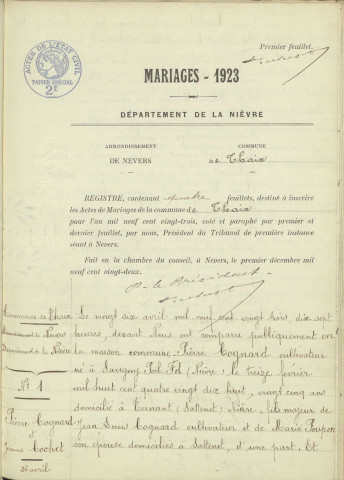 Premier feuillet.
ACTES DE L'ETAT CIVIL
PAPIER SPÉCIAL
2F
MARIAGES - 1923
DÉPARTEMENT DE LA NIÈVRE
ARRONDISSEMENT
DE NEVERS
COMMUNE
DE Thaix
REGISTRE, contenant quatre feuillets, destiné à inscrire
les Actes de Mariages de la commune de Thaix
pour l'an mil neuf cent vingt-trois, coté et paraphé par premier et
dernier feuillet, par nous, Président du Tribunal de première instance
séant à Nevers.
Fait en la chambre du conseil, à Nevers, le premier décembre mil
neuf cent vingt-deux.
P. le Président
Commune de Thaix
Arrondissement de Nevers
Département de la Nièvre
N° 1
Pierre Cognard
et
Jeanne
26 avril
Le vingt six avril mil neuf cent vingt trois, dix sept
heures, devant Nous ont comparu publiquement en
la maison commune Pierre Cognard cultivateur
né à Savigny Poil Fol (Nièvre) le treize février
mil huit cent quatre vingt dix huit, vingt cinq ans
domicilié à Ternant Nièvre, fils majeur de
Jean Louis Cognard cultivateur et de Marie
son épouse domiciliés à d'une part. Et